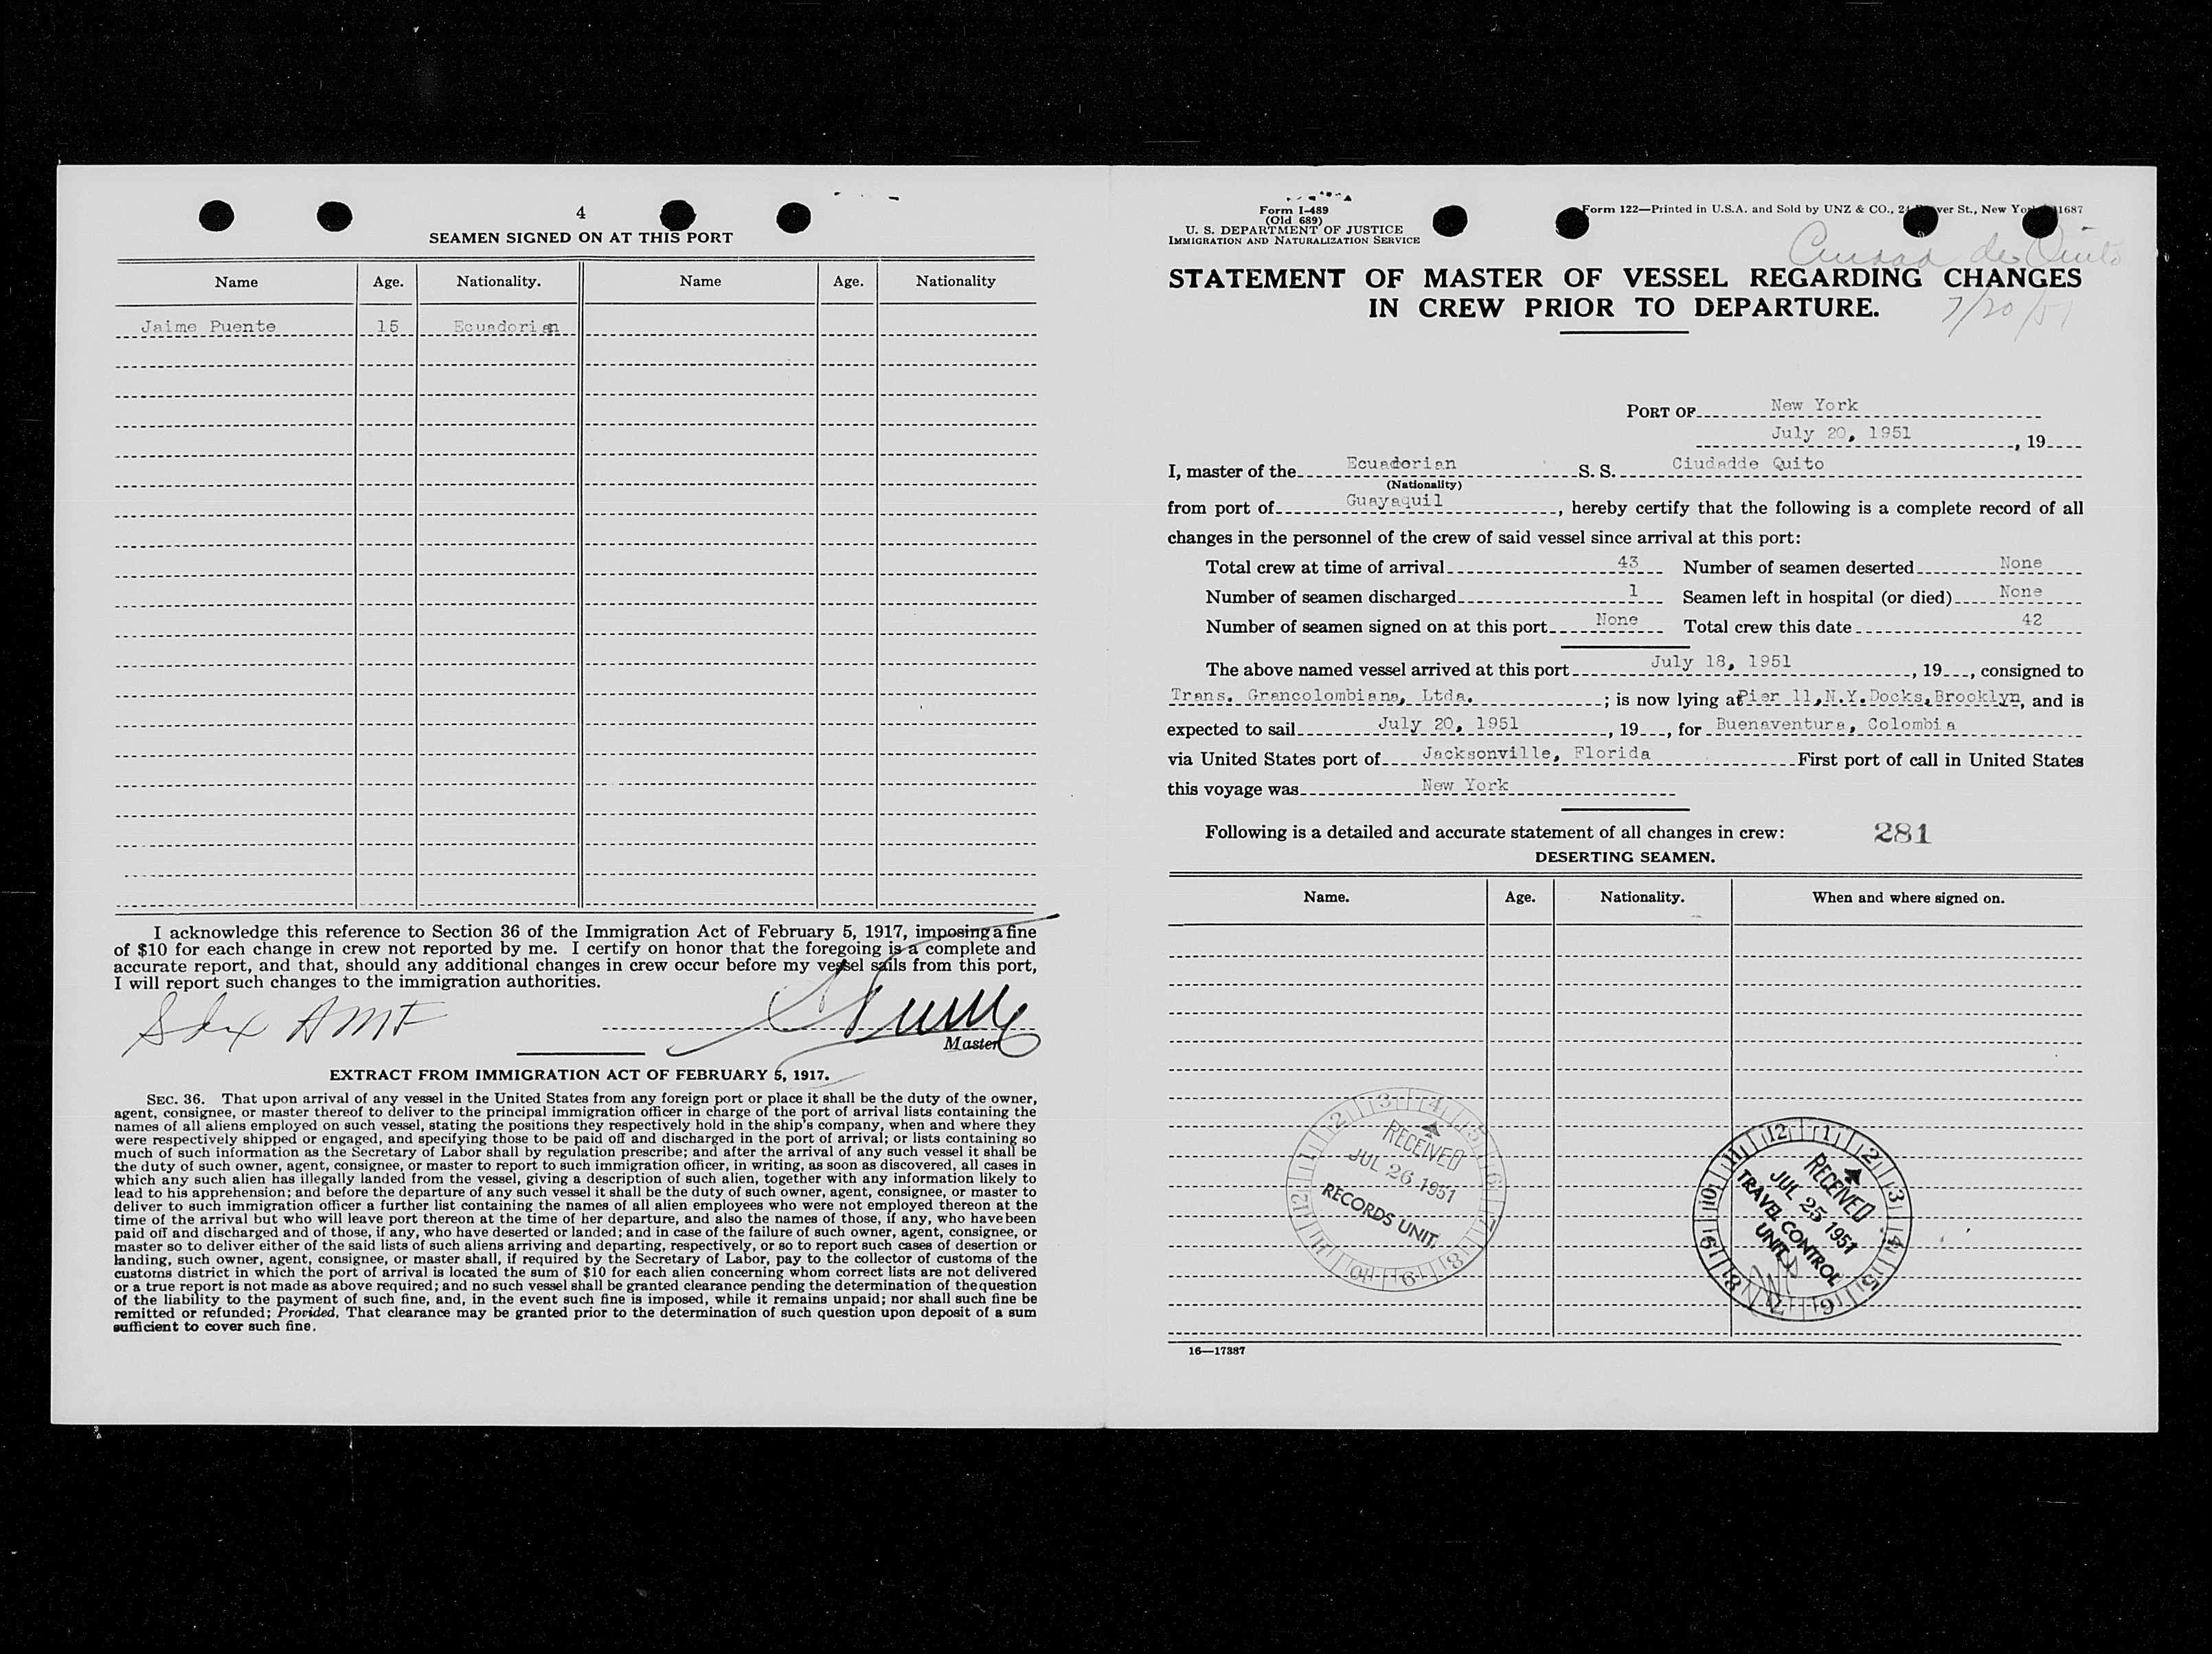 4
SEAMEN SIGNED ON AT THIS PORT
Name Age. Nationality. Name Age. Nationality
Jaime Puente 15 Ecuadorian
I acknowledge this reference to Section 36 of the Immigration Act of February 5, 1917, imposing a fine
of $10 for each change in crew not reported by me. I certify on honor that the foregoing is a complete and
accurate report, and that, should any additional changes in crew occur before my vessel sails from this port,
I will report such changes to the immigration authorities.
AMF
Master
EXTRACT FROM IMMIGRATION ACT OF FEBRUARY 5, 1917.
SEC. 36. That upon arrival of any vessel in the United States from any foreign port or place it shall be the duty of the owner,
agent, consignee, or master thereof to deliver to the principal immigration officer in charge of the port of arrival lists containing the
names of all aliens employed on such vessel, stating the positions they respectively hold in the ship's company, when and where they
were respectively shipped or engaged, and specifying those to be paid off and discharged in the port of arrival; or lists containing so
much of such information as the Secretary of Labor shall by regulation prescribe; and after the arrival of any such vessel it shall be
the duty of such owner, agent, consignee, or master to report to such immigration officer, in writing, as soon as discovered, all cases in
which any such alien has illegally landed from the vessel, giving a description of such alien, together with any information likely to
lead to his apprehension; and before the departure of any such vessel it shall be the duty of such owner, agent, consignee, or master to
deliver to such immigration officer a further list containing the names of all alien employees who were not employed thereon at the
time of the arrival but who will leave port thereon at the time of her departure, and also the names of those, if any, who have been
paid off and discharged and of those, if any, who have deserted or landed; and in case of the failure of such owner, agent, consignee, or
master so to deliver either of the said lists of such aliens arriving and departing, respectively, or so to report such cases of desertion or
landing, such owner, agent, consignee, or master shall, if required by the Secretary of Labor, pay to the collector of customs of the
customs district in which the port of arrival is located the sum of $10 for each alien concerning whom correct lists are not delivered
or a true report is not made as above required; and no such vessel shall be granted clearance pending the determination of the question
of the liability to the payment of such fine, and, in the event such fine is imposed, while it remains unpaid; nor shall such fine be
remitted or refunded; Provided, That clearance may be granted prior to the determination of such question upon deposit of a sum
sufficient to cover such fine.
Form I-489
(Old 689)
U. S. DEPARTMENT OF JUSTICE
IMMIGRATION AND NATURALIZATION SERVICE
Form 122—Printed in U.S.A. and Sold by UNZ & CO., St., New York 1687
Ciudad de Quito
STATEMENT OF MASTER OF VESSEL REGARDING CHANGES
IN CREW PRIOR TO DEPARTURE.
7/20/51
PORT OF New York
July 20, 1951, 19
I, master of the Ecuadorian S. S. Ciudadde Quito
(Nationality)
from port of Guayaquil, hereby certify that the following is a complete record of all
changes in the personnel of the crew of said vessel since arrival at this port:
Total crew at time of arrival 43 Number of seamen deserted None
Number of seamen discharged 1 Seamen left in hospital (or died) None
Number of seamen signed on at this port None Total crew this date 42
The above named vessel arrived at this port July 18, 1951, 19, consigned to
Trans. Grancolombiana, Ltda.; is now lying at Pier 11, N.Y. Docks, Brooklyn, and is
expected to sail July 20, 1951, 19, for Buenaventura, Colombia
via United States port of Jacksonville, Florida First port of call in United States
this voyage was New York
Following is a detailed and accurate statement of all changes in crew: 281
DESERTING SEAMEN.
Name. Age. Nationality. When and where signed on.
RECEIVED
JUL 26 1951
RECORDS UNIT
1 2 3 4 5 6 7 8 9 10 11 12
RECEIVED
JUL 25 1951
TRAVEL CONTROL
UNIT
1 2 3 4 5 6 7 8 9 10 11 12
16—17387